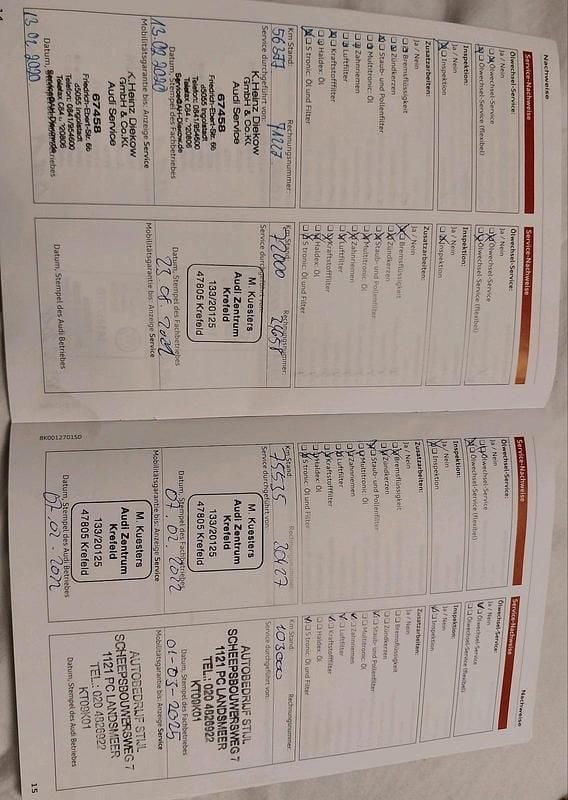 Nachweise
Service-Nachweise
Ölwechsel-Service:
Ja / Nein
Ölwechsel-Service
Ölwechsel-Service (flexibel)
Inspektion:
Ja / Nein
Inspektion
Zusatzarbeiten:
Ja / Nein
Bremsflüssigkeit
Zündkerzen
Staub- und Pollenfilter
Multitronic Öl
Zahnriemen
Luftfilter
Kraftstofffilter
Haldex: Öl
S tronic: Öl und Filter
Km Stand:
Rechnungsnummer:
56377
Service durchgeführt von:
K.Heinz Diekow
GmbH & Co.KG
Audi Service
67458
Friedrich-Ebert-Str. 66
85055 Ingolstadt
Datum, Stempel des Fachbetriebes
13.02.2020
Mobilitätsgarantie bis: Anzeige Service
K.Heinz Diekow
GmbH & Co.KG
Audi Service
67458
Friedrich-Ebert-Str. 66
85055 Ingolstadt
13.02.2020
Service-Nachweise
Ölwechsel-Service:
Ja / Nein
Ölwechsel-Service
Ölwechsel-Service (flexibel)
Inspektion:
Ja / Nein
Inspektion
Zusatzarbeiten:
Ja / Nein
Bremsflüssigkeit
Zündkerzen
Staub- und Pollenfilter
Multitronic: Öl
Zahnriemen
Luftfilter
Kraftstofffilter
Haldex: Öl
S tronic: Öl und Filter
Km Stand:
Rechnungsnummer:
72000
M. Kuesters
Audi Zentrum
Krefeld
133/20125
47805 Krefeld
Datum, Stempel des Fachbetriebes
Mobilitätsgarantie bis: Anzeige Service
Datum, Stempel des Audi Betriebes
BK0012701SD
Service-Nachweise
Ölwechsel-Service:
Ja / Nein
Ölwechsel-Service
Ölwechsel-Service (flexibel)
Inspektion:
Ja / Nein
Inspektion
Zusatzarbeiten:
Ja / Nein
Bremsflüssigkeit
Zündkerzen
Staub- und Pollenfilter
Multitronic: Öl
Zahnriemen
Luftfilter
Kraftstofffilter
Haldex: Öl
S tronic: Öl und Filter
Km Stand:
75535
Service durchgeführt von:
M. Kuesters
Audi Zentrum
Krefeld
133/20125
47805 Krefeld
Datum, Stempel des Fachbetriebes
07.02.2022
Mobilitätsgarantie bis: Anzeige Service
M. Kuesters
Audi Zentrum
Krefeld
133/20125
47805 Krefeld
07.02.2022
Datum, Stempel des Audi Betriebes
Nachweise
Service-Nachweise
Ölwechsel-Service:
Ja / Nein
Ölwechsel-Service
Ölwechsel-Service (flexibel)
Inspektion:
Ja / Nein
Inspektion
Zusatzarbeiten:
Ja / Nein
Bremsflüssigkeit
Zündkerzen
Staub- und Pollenfilter
Multitronic: Öl
Zahnriemen
Luftfilter
Kraftstofffilter
Haldex: Öl
S tronic: Öl und Filter
Km Stand:
Rechnungsnummer
103000
Service durchgeführt von:
AUTOBEDRIJF STIJL
SCHEEPSBOUWERSWEG 7
1121 PC LANDSMEER
TEL.: 020 4826922
KT09K01
Datum, Stempel des Fachbetriebes
01-03-2025
Mobilitätsgarantie bis: Anzeige Service
AUTOBEDRIJF STIJL
SCHEEPSBOUWERSWEG 7
1121 PC LANDSMEER
TEL.: 020 4826922
KT09K01
Datum, Stempel des Audi Betriebes
15